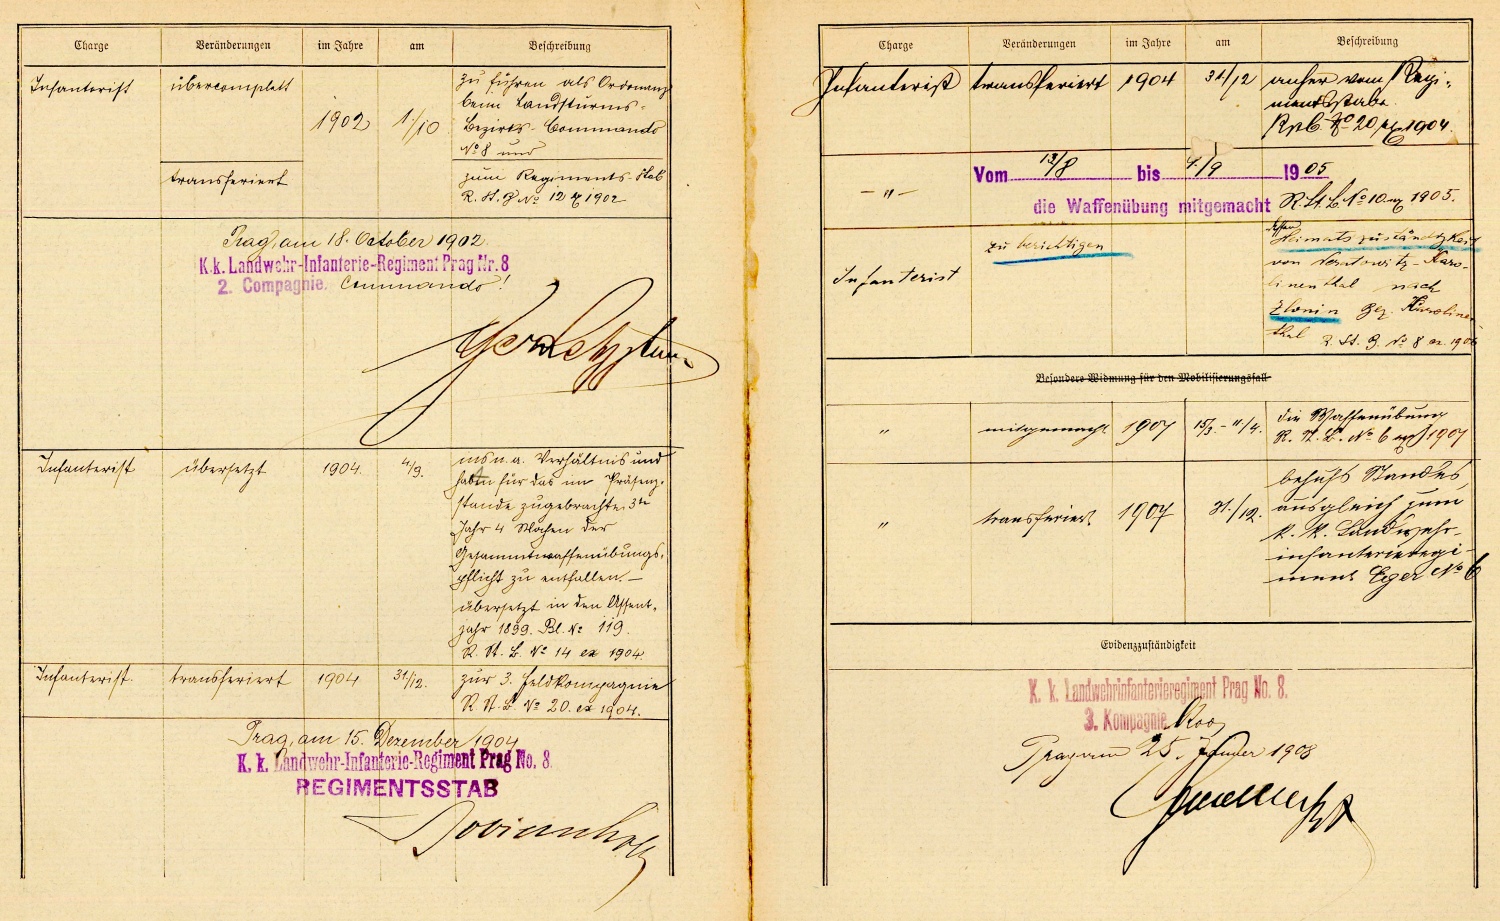 Charge Veränderungen im Jahre am Beschreibung
Infanterist übercomplett 1902 1./10.
zu führen als Ordonnanz
beim Landsturms-
Bezirks-Commando
№ 8 und
transferiert
zum Regiments-Stab
R. St. B № 12 ex 1902
Prag, am 18. October 1902.
K.k. Landwehr-Infanterie-Regiment Prag Nr. 8
2. Compagnie. Commando!
Infanterist übersetzt 1904. 4/9.
ins n. a. Verhältnis und
haben für das im Präsenz-
stande zugebrachte 3te
Jahr 4 Wochen der
Gesammtwaffenübungs-
pflicht zu entfallen. —
übersetzt in den Assent-
jahr 1899. Bl. № 119.
R. St. B. № 14 ex 1904.
Infanterist. transferiert 1904 31/12.
zur 3. Feldkompagnie
R. St. B. № 20. ex 1904.
Prag, am 15. Dezember 1904
K. k. Landwehr-Infanterie-Regiment Prag No. 8.
REGIMENTSSTAB
Charge Veränderungen im Jahre am Beschreibung
Infanterist transferiert 1904 31/12
anher vom Regi-
mentsstabe.
№ 20 ex 1904.
—„— Vom 13/8 bis 9./9 1905
die Waffenübung mitgemacht R. St. B. № 10 ex 1905.
Infanterist zu berichtigen
dessen
Heimatszuständigkeit
von Neratowitz-Karo-
linenthal nach
Zlonin Bez. Karolinen-
thal R. St. B. № 8 ex. 1906
Besondere Widmung für den Mobilisierungsfall
„ mitgemacht 1907 15/3.-11/4.
die Waffenübung
R. St. B. № 6 ex 1907
„ transferiert 1907 31./12.
behufs Standes
ausgleich zum
k. k. Landwehr-
infanterieregi-
ment Eger № 6
Evidenzzuständigkeit
K. k. Landwehrinfanterieregiment Prag No. 8.
3. Kompagnie
Prag am 25. Jänner 1908